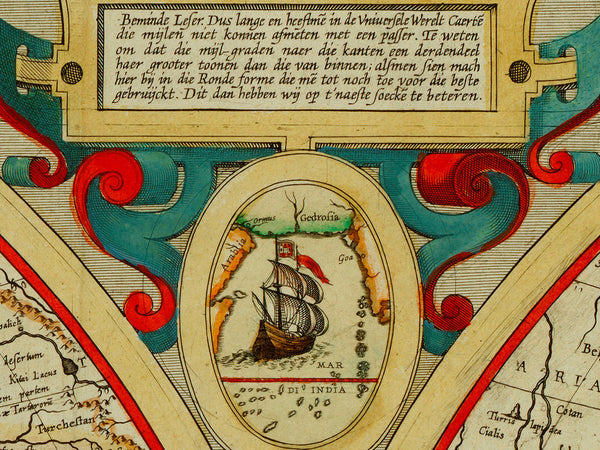 Beminde Leser. Dus lange en heeftmē in de Vniuersele Werelt Caertē
die mijlen niet konnen afmeten met een passer. Te weten
om dat die mijl-graden naer die kanten een derdendeel
haer grooter toonen dan die van binnen; alsmen sien mach
hier bij in die Ronde forme die mē tot noch toe voor die beste
gebruijckt. Dit dan hebben wij op t'naeste soeckē te beteren.
Ormus
Gedrosia
Arabia
Goa
MAR
DI INDIA
Kitai Lacus
em partem
æ Tartarorū
Turchestan
ARIA
Cotan
Turris
Cialis